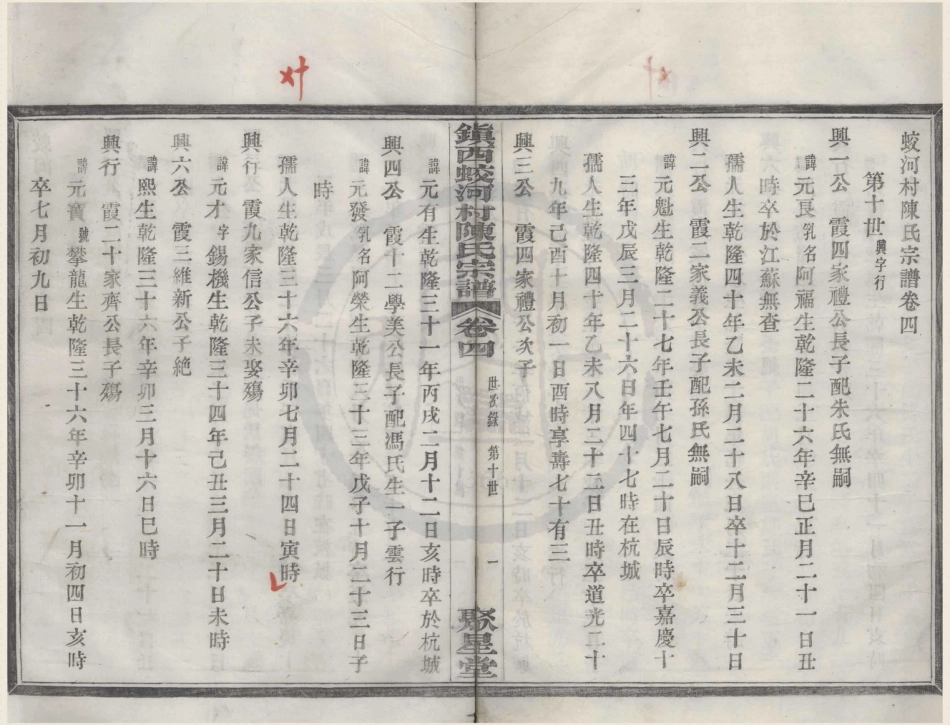 蛟河村陳氏宗譜卷四
第十世興字行
興一公 霞四家禮公長子配朱氏無嗣
諱元良乳名阿福生乾隆二十六年辛巳正月二十一日丑
時卒於江蘇無查
孺人生乾隆四十年乙未二月二十八日卒十二月三十日
興二公 霞二家義公長子配孫氏無嗣
諱元魁生乾隆二十七年壬午七月二十日辰時卒嘉慶十
三年戊辰三月二十六日年四十七時在杭城
孺人生乾隆四十年乙未八月二十二日丑時卒道光二十
九年己酉十月初一日酉時享壽七十有三
興三公 霞四家禮公次子
鎮西蛟河村陳氏宗譜 卷四 世次錄 第十世 一 聚星堂
諱元有生乾隆三十一年丙戌二月十二日亥時卒於杭城
興四公 霞十二學美公長子配馮氏生一子雲行
諱元發乳名阿榮生乾隆三十三年戊子十月二十三日子
時
孺人生乾隆三十六年辛卯七月二十四日寅時
興行 霞九家信公子未娶殤
諱元才字錫機生乾隆三十四年己丑三月二十日未時
興六公 霞三維新公子絶
諱熙生乾隆三十六年辛卯三月十六日巳時
興行 霞二十家齊公長子殤
諱元寶號攀龍生乾隆三十六年辛卯十一月初四日亥時
卒七月初九日